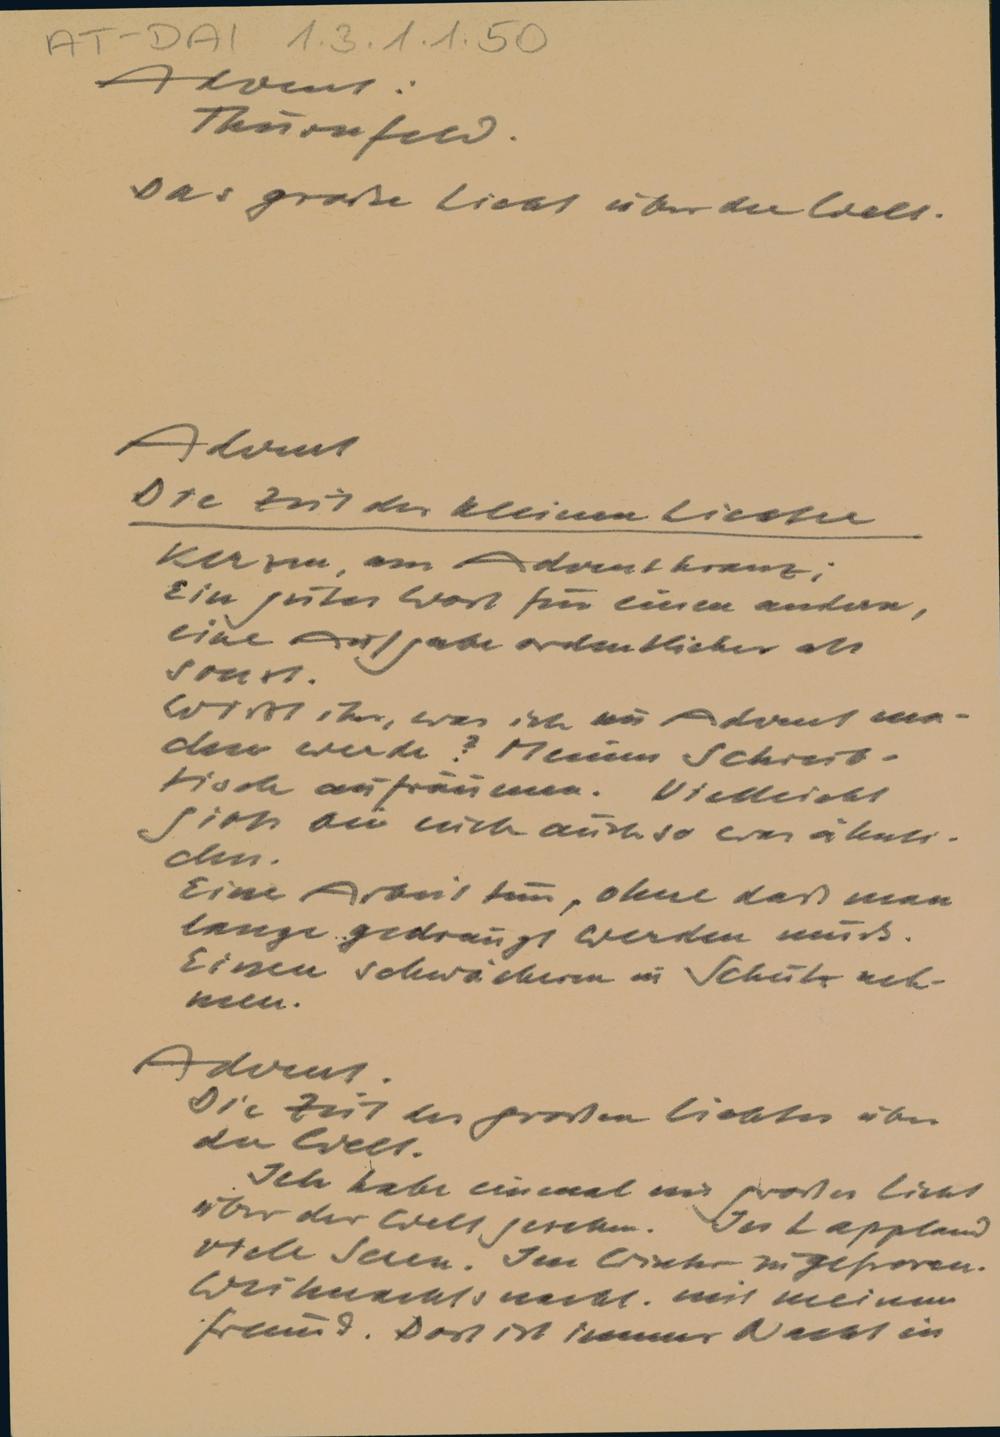 AT-DAI 1.3.1.1.50
Advent:
Thürnfeld.
Das große Licht über der Welt.
Advent
Die Zeit der kleinen Lichter
Kerzen, am Adventkranz;
Ein gutes Wort für einen andern,
eine Aufgabe ordentlicher als
sonst.
Wißt ihr, was ich im Advent ma-
chen werde? Meinen Schreib-
tisch aufräumen. Vielleicht
gibts bei euch auch so was ähnli-
ches.
Eine Arbeit tun, ohne daß man
lange gedrängt werden muß.
Einen schwächeren in Schutz neh-
men.
Advent.
Die Zeit des großen Lichtes über
der Welt.
Ich habe einmal ein großes Licht
über der Welt gesehen. In Lappland
viele Seen. Im Winter zugefroren.
Weihnachtsnacht. mit meinem
Freund. Dort ist immer Nacht in